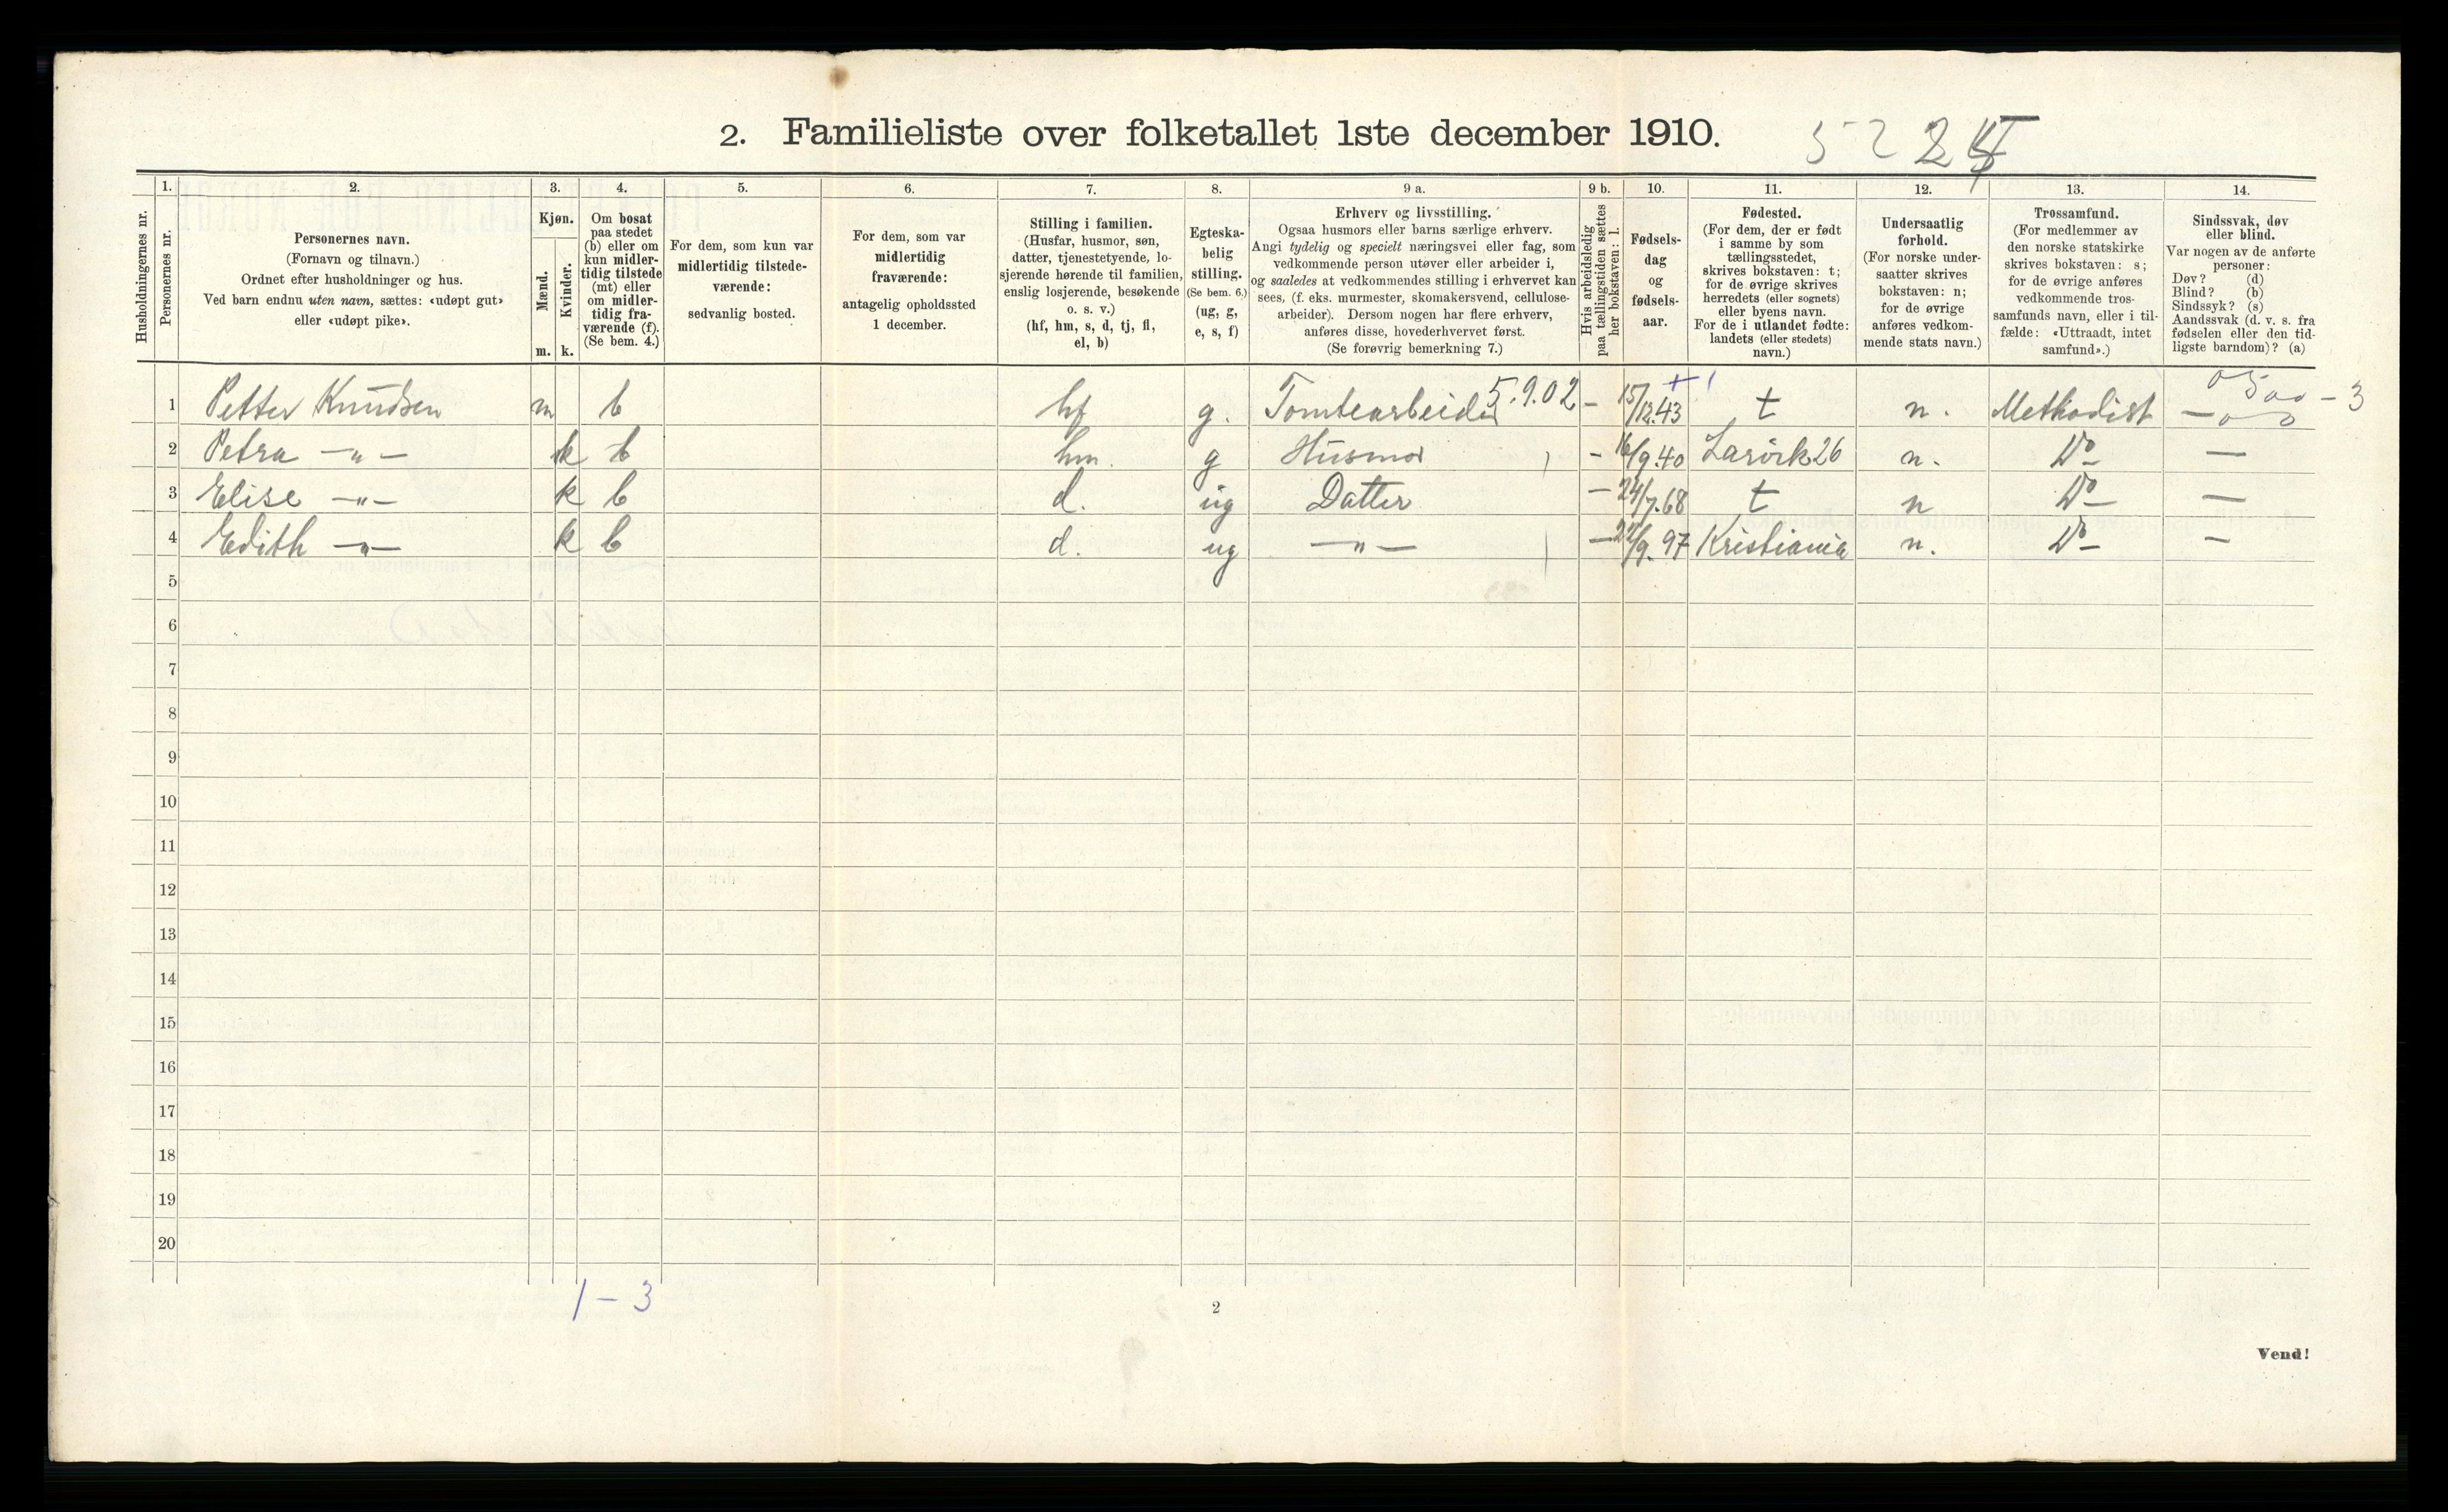 2. Familieliste over folketallet 1ste december 1910.
52 24
1. 2. 3. 4. 5. 6. 7. 8. 9 a. 9 b. 10. 11. 12. 13. 14.
Husholdningernes nr.
Personernes nr.
Personernes navn.
(Fornavn og tilnavn.)
Ordnet efter husholdninger og hus.
Ved barn endnu uten navn, sættes: «udøpt gut»
eller «udøpt pike».
Kjøn.
Mænd.
Kvinder.
m. k.
Om bosat
paa stedet
(b) eller om
kun midler-
tidig tilstede
(mt) eller
om midler-
tidig fra-
værende (f).
(Se bem. 4.)
For dem, som kun var
midlertidig tilstede-
værende:
sedvanlig bosted.
For dem, som var
midlertidig
fraværende:
antagelig opholdssted
1 december.
Stilling i familien.
(Husfar, husmor, søn,
datter, tjenestetyende, lo-
sjerende hørende til familien,
enslig losjerende, besøkende
o. s. v.)
(hf, hm, s, d, tj, fl,
el, b)
Egteska-
belig
stilling.
(Se bem. 6.)
(ug, g,
e, s, f)
Erhverv og livsstilling.
Ogsaa husmors eller barns særlige erhverv.
Angi tydelig og specielt næringsvei eller fag, som
vedkommende person utøver eller arbeider i,
og saaledes at vedkommendes stilling i erhvervet kan
sees, (f. eks. murmester, skomakersvend, cellulose-
arbeider). Dersom nogen har flere erhverv,
anføres disse, hovederhvervet først.
(Se forøvrig bemerkning 7.)
Hvis arbeidsledig
paa tællingstiden sættes
her bokstaven: l.
Fødsels-
dag
og
fødsels-
aar.
Fødested.
(For dem, der er født
i samme by som
tællingsstedet,
skrives bokstaven: t;
for de øvrige skrives
herredets (eller sognets)
eller byens navn.
For de i utlandet fødte:
landets (eller stedets)
navn.)
Undersaatlig
forhold.
(For norske under-
saatter skrives
bokstaven: n;
for de øvrige
anføres vedkom-
mende stats navn.)
Trossamfund.
(For medlemmer av
den norske statskirke
skrives bokstaven: s;
for de øvrige anføres
vedkommende tros-
samfunds navn, eller i til-
fælde: «Uttraadt, intet
samfund».)
Sindssvak, døv
eller blind.
Var nogen av de anførte
personer:
Døv? (d)
Blind? (b)
Sindssyk? (s)
Aandssvak (d. v. s. fra
fødselen eller den tid-
ligste barndom)? (a)
1 Petter Knudsen m b hf g. Tomtearbeider 5.9.02 – 15/12.43 t n. Methodist —
2 Petra —„— k b hm. g Husmor – 16/9.40 Larvik 26 n. Do —
3 Elise —„— k b d. ug Datter – 24/7.68 t n Do —
4 Edith —„— k b d. ug —„— – 22/9.97 Kristiania n. Do —
5
6
7
8
9
10
11
12
13
14
15
16
17
18
19
20
1 – 3
2
Vend!